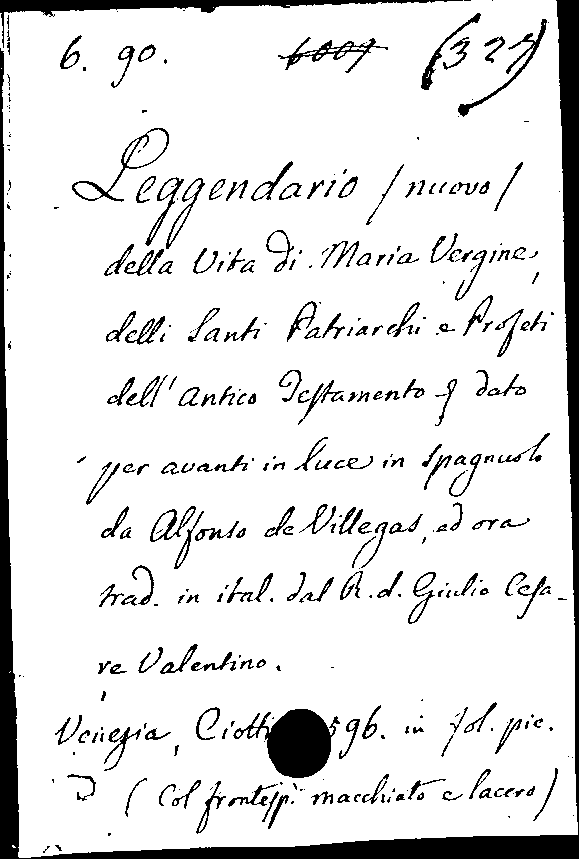 6. 90. 6007 (327)
Leggendario / nuovo /
della Vita di Maria Vergine,
delli Santi Patriarchi e Profeti
dell' Antico Testamento dato
per avanti in luce in spagnuolo
da Alfonso de Villegas, ed ora
trad. in ital. dal R. d. Giulio Cesa-
re Valentino.
Venezia, Ciotti 596. in fol. pic.
(Col frontesp. macchiato e lacero)